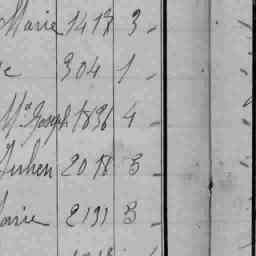 Marie 1418 3 -
e 304 1 -
Mª Joseph 1836 4 -
Julien 2018 3 -
Marie 2191 3 -